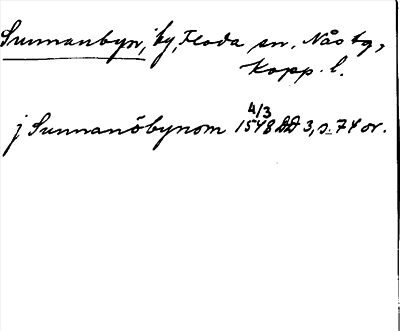 Sunnanbyn, by, Floda sn. Nås tg,
Kopp. l.
4/3
j Sunnanöbynom 1548 DD 3, s. 74 or.